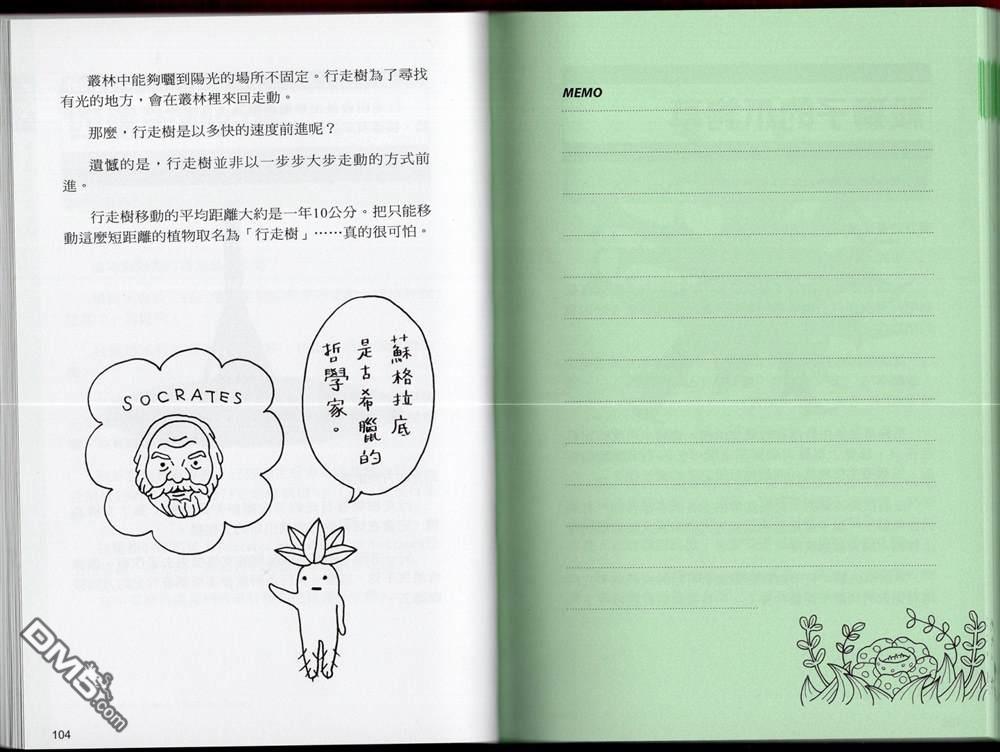 叢林中能夠曬到陽光的場所不固定。行走樹為了尋找
有光的地方，會在叢林裡來回走動。
那麼，行走樹是以多快的速度前進呢？
遺憾的是，行走樹並非以一步步大步走動的方式前
進。
行走樹移動的平均距離大約是一年10公分。把只能移
動這麼短距離的植物取名為「行走樹」……真的很可怕。
蘇格拉底
是古希臘的
哲學家。
SOCRATES
DM5.com
104
MEMO